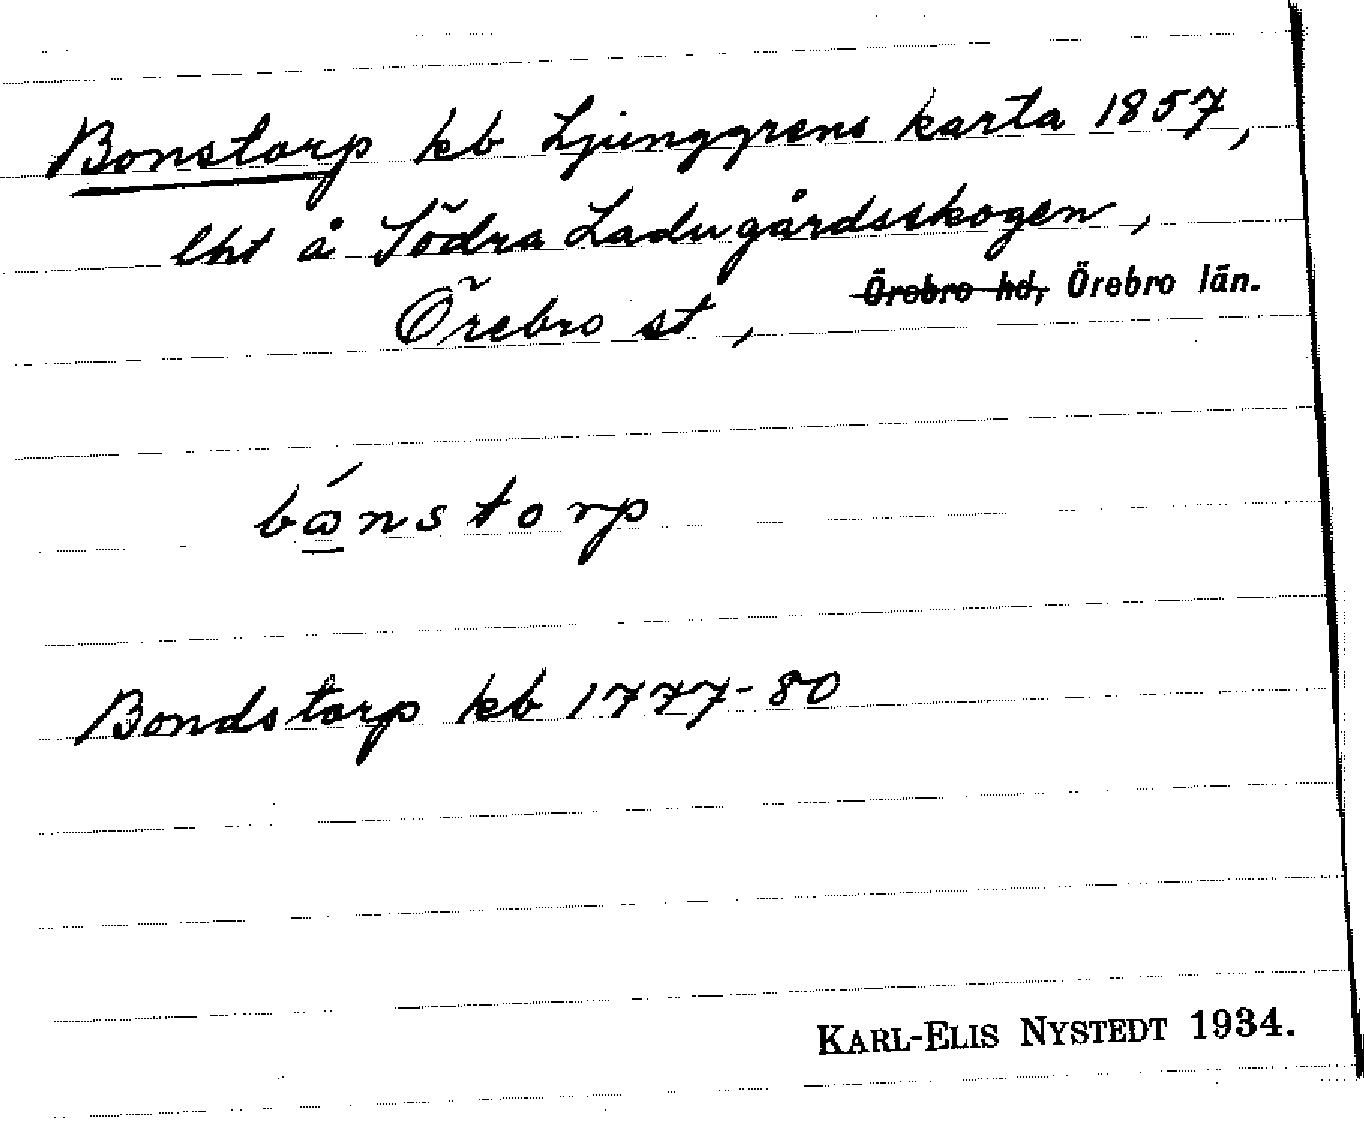 Bonstorp kb Ljunggrens karta 1857,
lht å Södra Ladugårdsskogen,
Örebro st, Örebro hd, Örebro län.
bónstorp
Bondstorp kb 1777-80
KARL-ELIS NYSTEDT 1934.